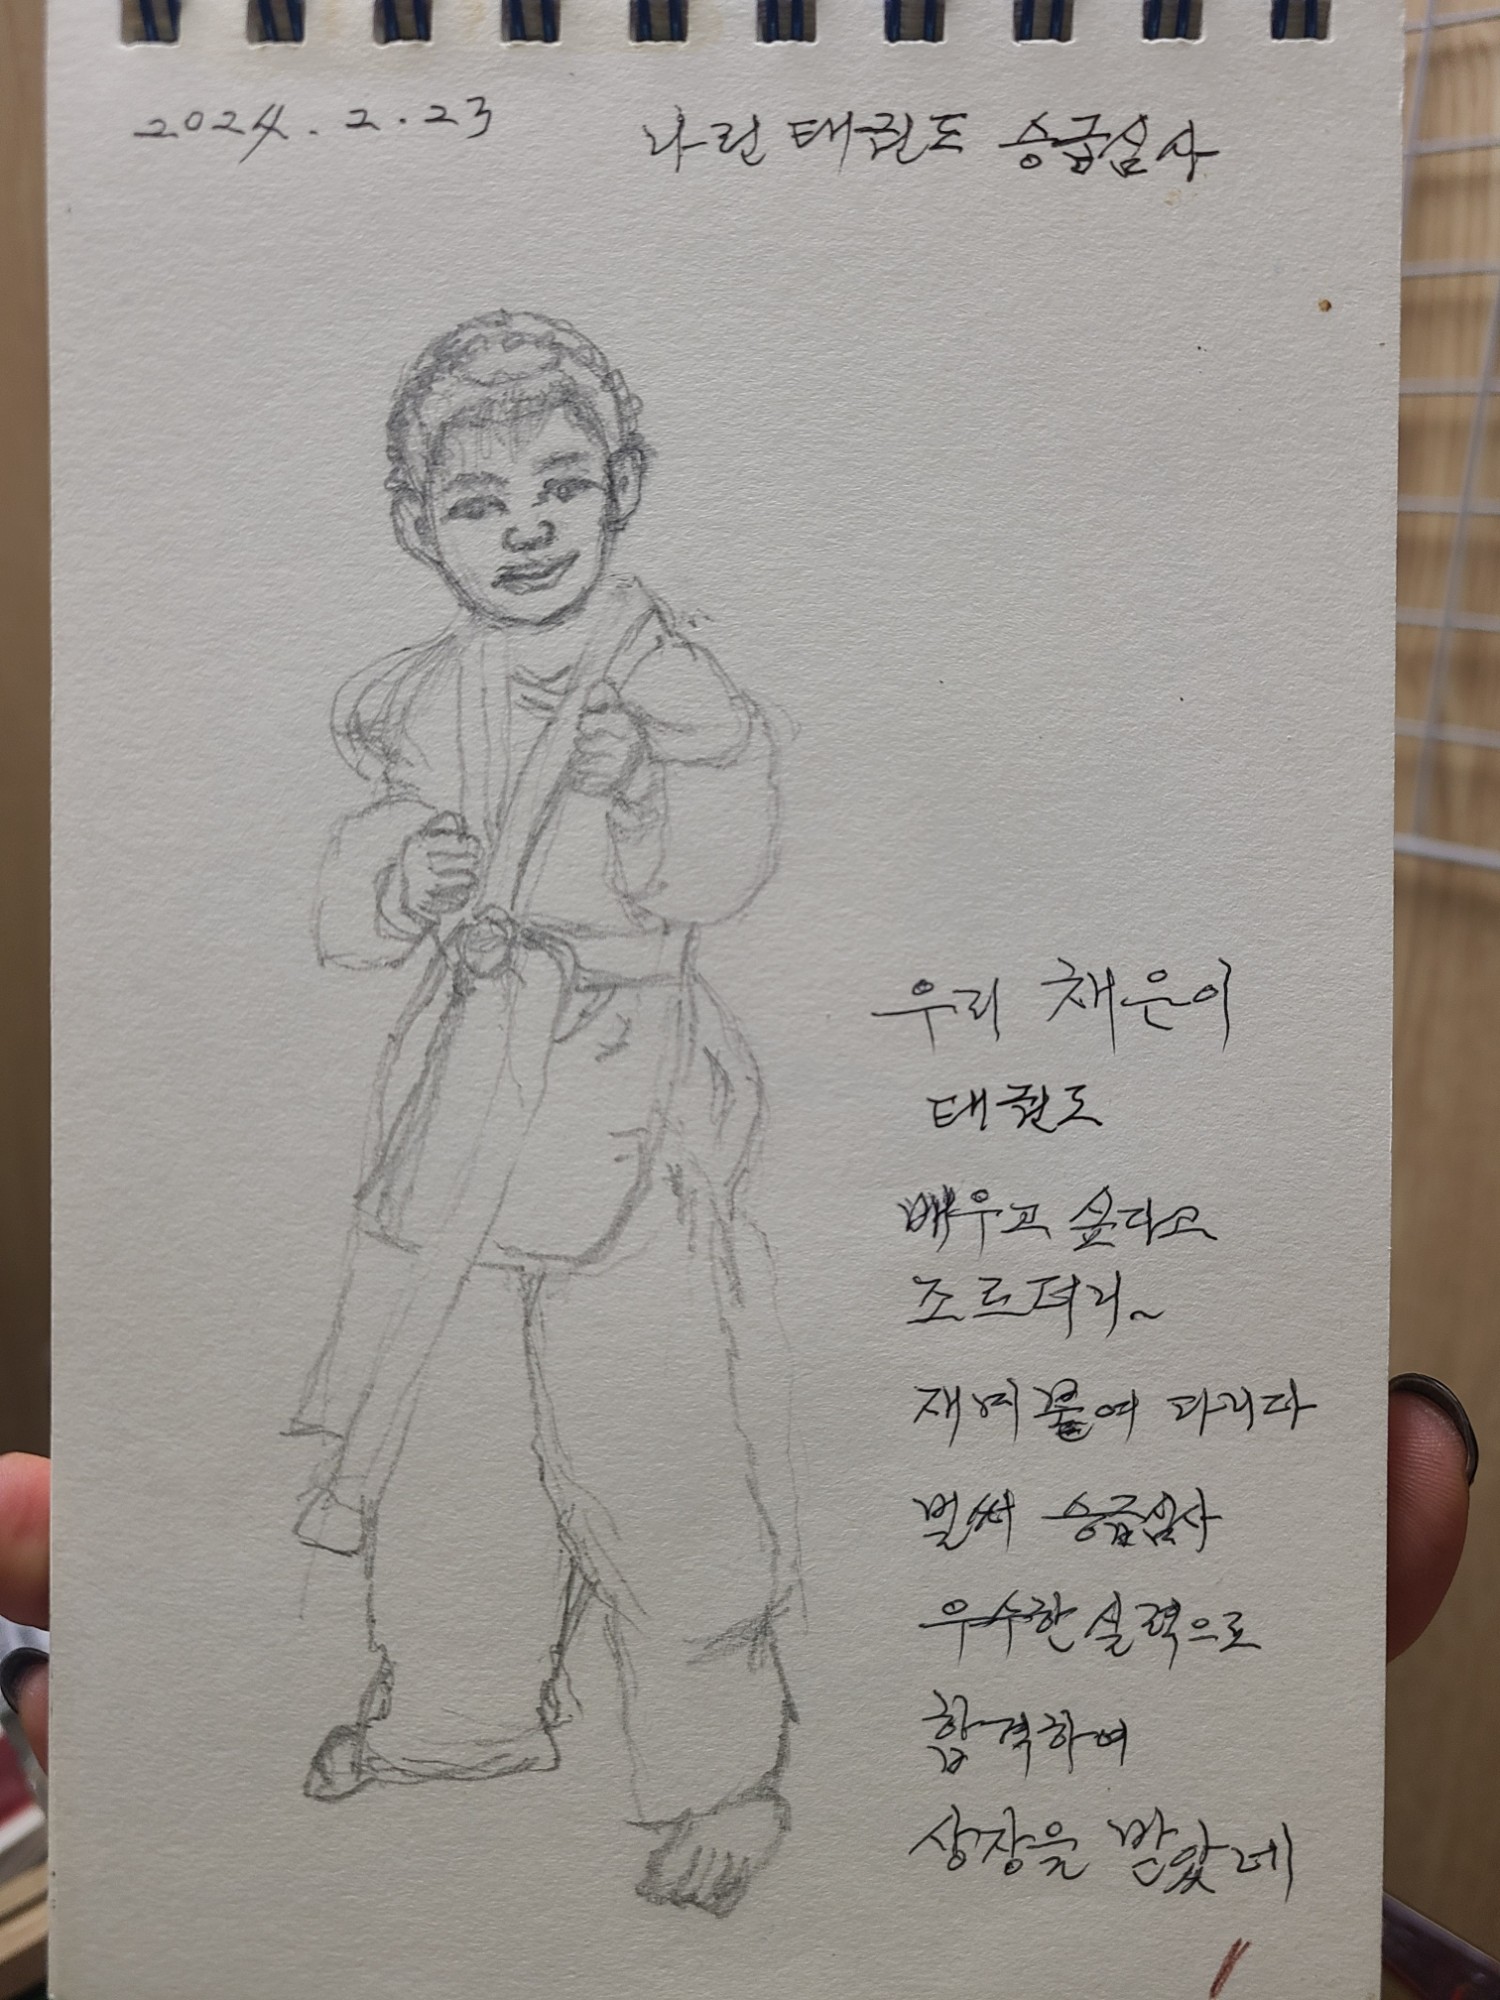 2024. 2. 23
나린 태권도 승급심사
우리 채은이
태권도
배우고 싶다고
조르더니~
재미붙여 다니다
벌써 승급심사
우수한 실력으로
합격하여
상장을 받았네